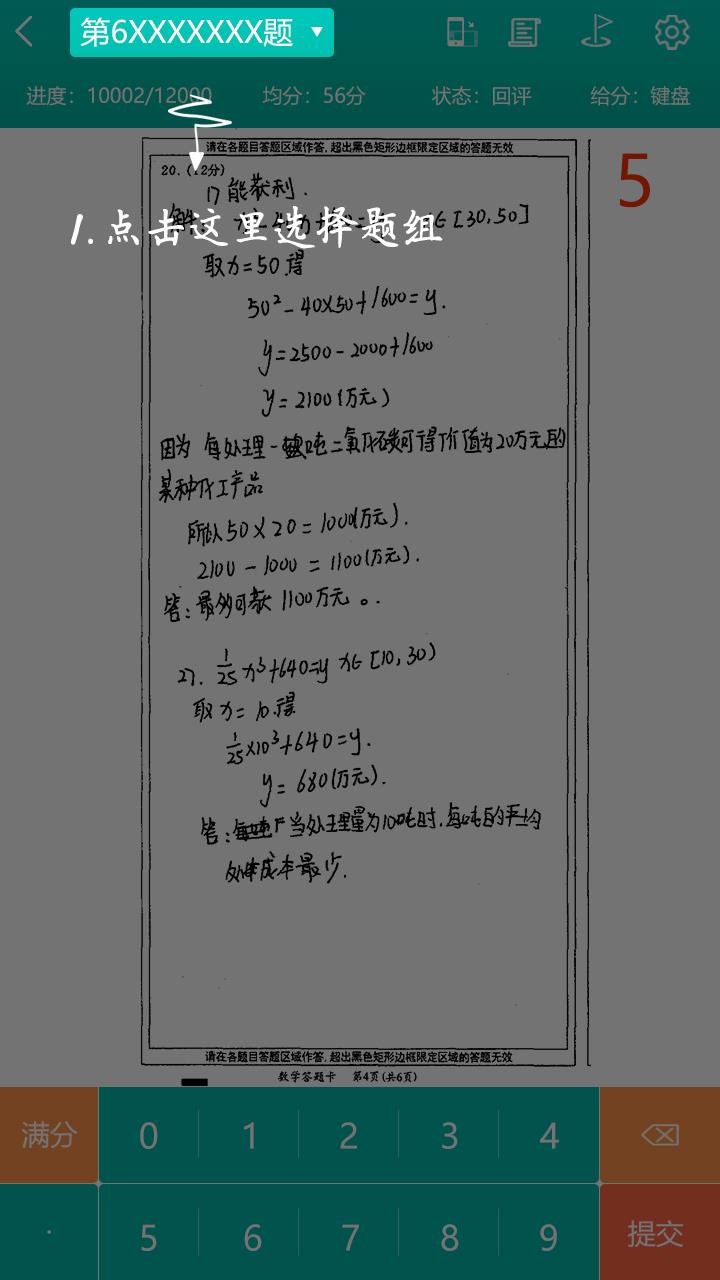 第6XXXXXXX题 ▼
进度：10002/12000 均分：56分 状态：回评 给分：键盘
请在各题目答题区域作答，超出黑色矩形边框限定区域的答题无效
5
20.（12分）
1) 能获利．
1.点击这里选择题组
∈[30,50]
取x=50.得
50²-40×50+1600=y．
y=2500-2000+1600
y=2100(万元)
因为 每处理一吨二氧化碳可得价值为20万元的
某种化工产品
所以50×20=1000(万元)．
2100-1000=1100(万元)．
答：最多可获1100万元。．
2). 1/25 x³+640=y x∈[10,30)
取x=10.得
1/25×10³+640=y．
y=680(万元)．
当处理量为10吨时．每吨的平均
成本最少．
请在各题目答题区域作答，超出黑色矩形边框限定区域的答题无效
数学答题卡 第4页(共6页)
满分 0 1 2 3 4
. 5 6 7 8 9 提交